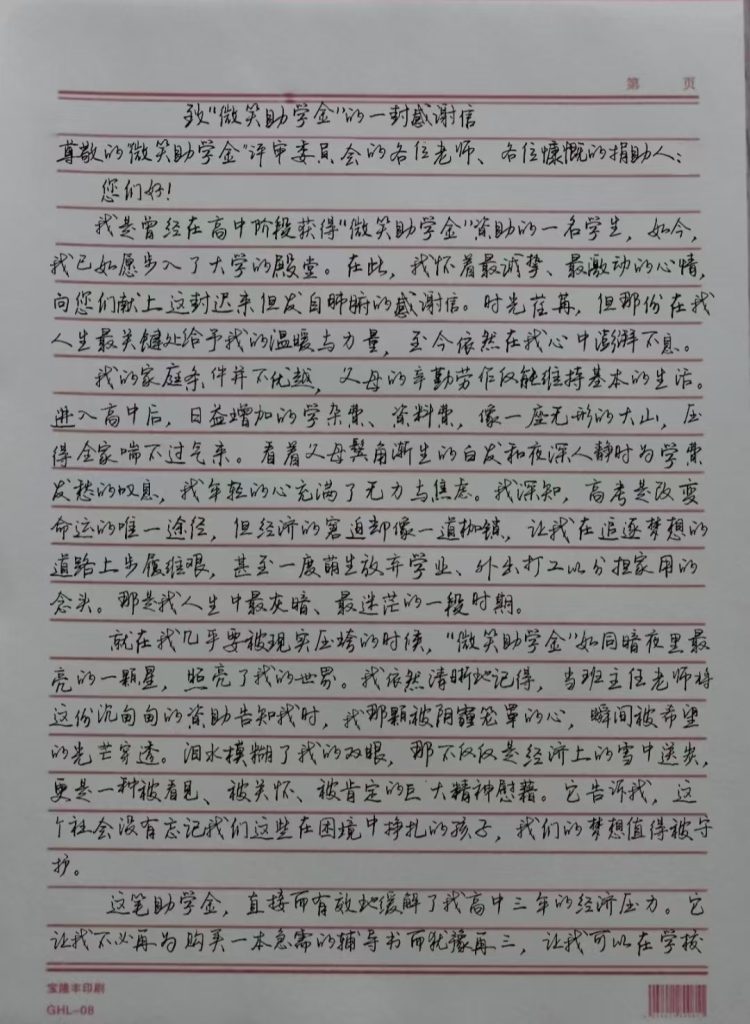 第 页
致"微笑助学金"的一封感谢信
尊敬的"微笑助学金"评审委员会的各位老师、各位慷慨的捐助人：
您们好！
我是曾经在高中阶段获得"微笑助学金"资助的一名学生，如今，
我已如愿步入了大学的殿堂。在此，我怀着最诚挚、最激动的心情，
向您们献上这封迟来但发自肺腑的感谢信。时光荏苒，但那份在我
人生最关键处给予我的温暖与力量，至今依然在我心中澎湃不息。
我的家庭条件并不优越，父母的辛勤劳作仅能维持基本的生活。
进入高中后，日益增加的学杂费、资料费，像一座无形的大山，压
得全家喘不过气来。看着父母鬓角渐生的白发和夜深人静时为学费
发愁的叹息，我年轻的心充满了无力与焦虑。我深知，高考是改变
命运的唯一途径，但经济的窘迫却像一道枷锁，让我在追逐梦想的
道路上步履维艰，甚至一度萌生放弃学业、外出打工以分担家用的
念头。那是我人生中最灰暗、最迷茫的一段时期。
就在我几乎要被现实压垮的时候，"微笑助学金"如同暗夜里最
亮的一颗星，照亮了我的世界。我依然清晰地记得，当班主任老师将
这份沉甸甸的资助告知我时，我那颗被阴霾笼罩的心，瞬间被希望
的光芒穿透。泪水模糊了我的双眼，那不仅仅是经济上的雪中送炭，
更是一种被看见、被关怀、被肯定的巨大精神慰藉。它告诉我，这
个社会没有忘记我们这些在困境中挣扎的孩子，我们的梦想值得被守
护。
这笔助学金，直接而有效地缓解了我高中三年的经济压力。它
让我不必再为购买一本急需的辅导书而犹豫再三，让我可以在学校
宝隆丰印刷
GHL-08